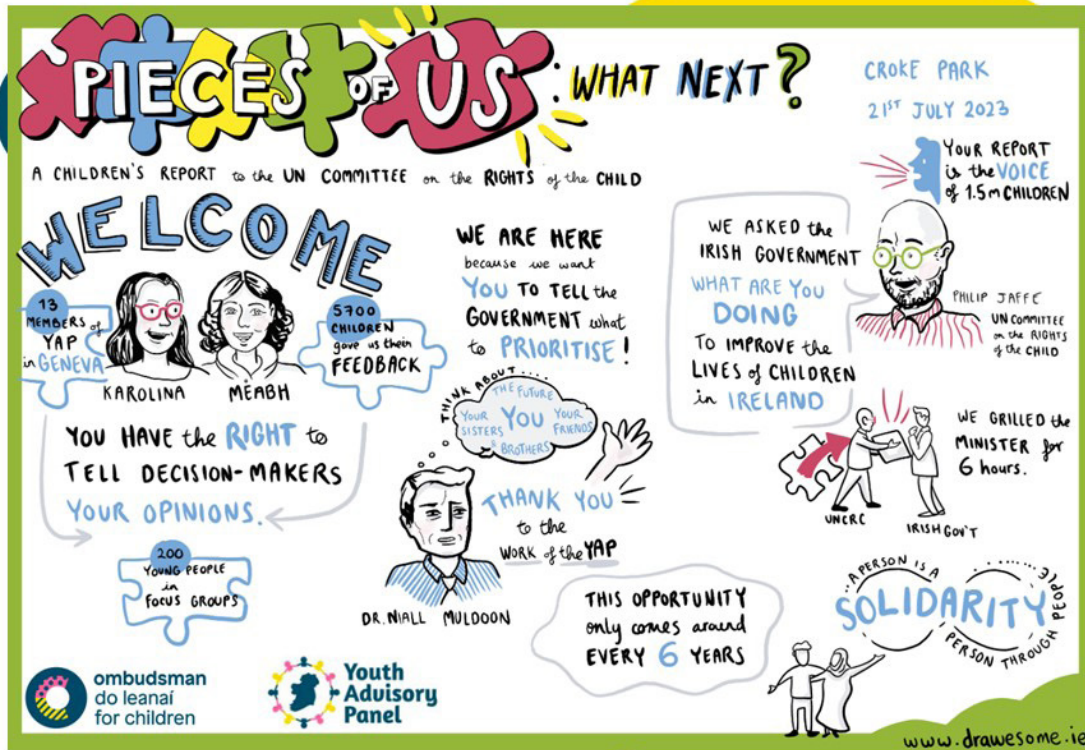 PIECES OF US: WHAT NEXT?
CROKE PARK
21ST JULY 2023
A CHILDREN'S REPORT to the UN COMMITTEE on the RIGHTS of the CHILD
WELCOME
13
MEMBERS of
YAP
in GENEVA
KAROLINA
MÉABH
5700
CHILDREN
gave us their
FEEDBACK
YOU HAVE the RIGHT to
TELL DECISION-MAKERS
YOUR OPINIONS.
200
YOUNG PEOPLE
in
FOCUS GROUPS
WE ARE HERE
because we want
YOU TO TELL the
GOVERNMENT what
to PRIORITISE!
THINK ABOUT....
THE FUTURE
YOUR SISTERS & BROTHERS
YOU
YOUR FRIENDS
THANK YOU
to the
WORK of the YAP
DR. NIALL MULDOON
THIS OPPORTUNITY
only comes around
EVERY 6 YEARS
YOUR REPORT
is the VOICE
of 1.5m CHILDREN
WE ASKED the
IRISH GOVERNMENT
WHAT ARE YOU
DOING
TO IMPROVE the
LIVES of CHILDREN
in IRELAND
PHILIP JAFFÉ
UN COMMITTEE
on the RIGHTS
of the CHILD
WE GRILLED the
MINISTER for
6 hours.
UNCRC
IRISH GOV'T
...A PERSON IS A
PERSON THROUGH PEOPLE...
SOLIDARITY
ombudsman
do leanaí
for children
Youth
Advisory
Panel
www.drawesome.ie